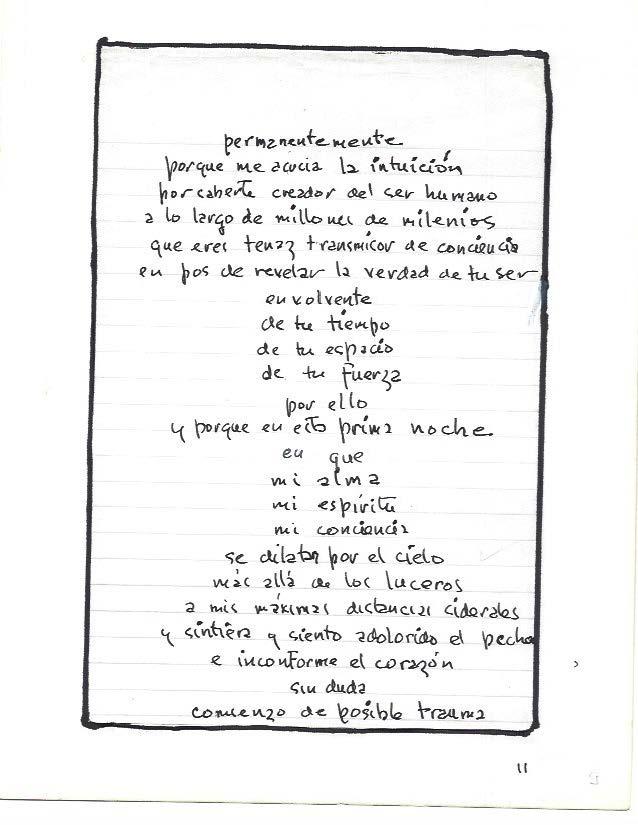 permanentemente
porque me acucia la intuición
por saberte creador del ser humano
a lo largo de millones de milenios
que eres tenaz transmisor de conciencia
en pos de revelar la verdad de tu ser
envolvente
de tu tiempo
de tu espacio
de tu fuerza
por ello
y porque en esta prima noche
en que
mi alma
mi espíritu
mi conciencia
se dilatan por el cielo
más allá de los luceros
a mis máximas distancias ciderales
y sintiera y siento adolorido el pecho
e inconforme el corazón
sin duda
comienzo de posible trauma
11